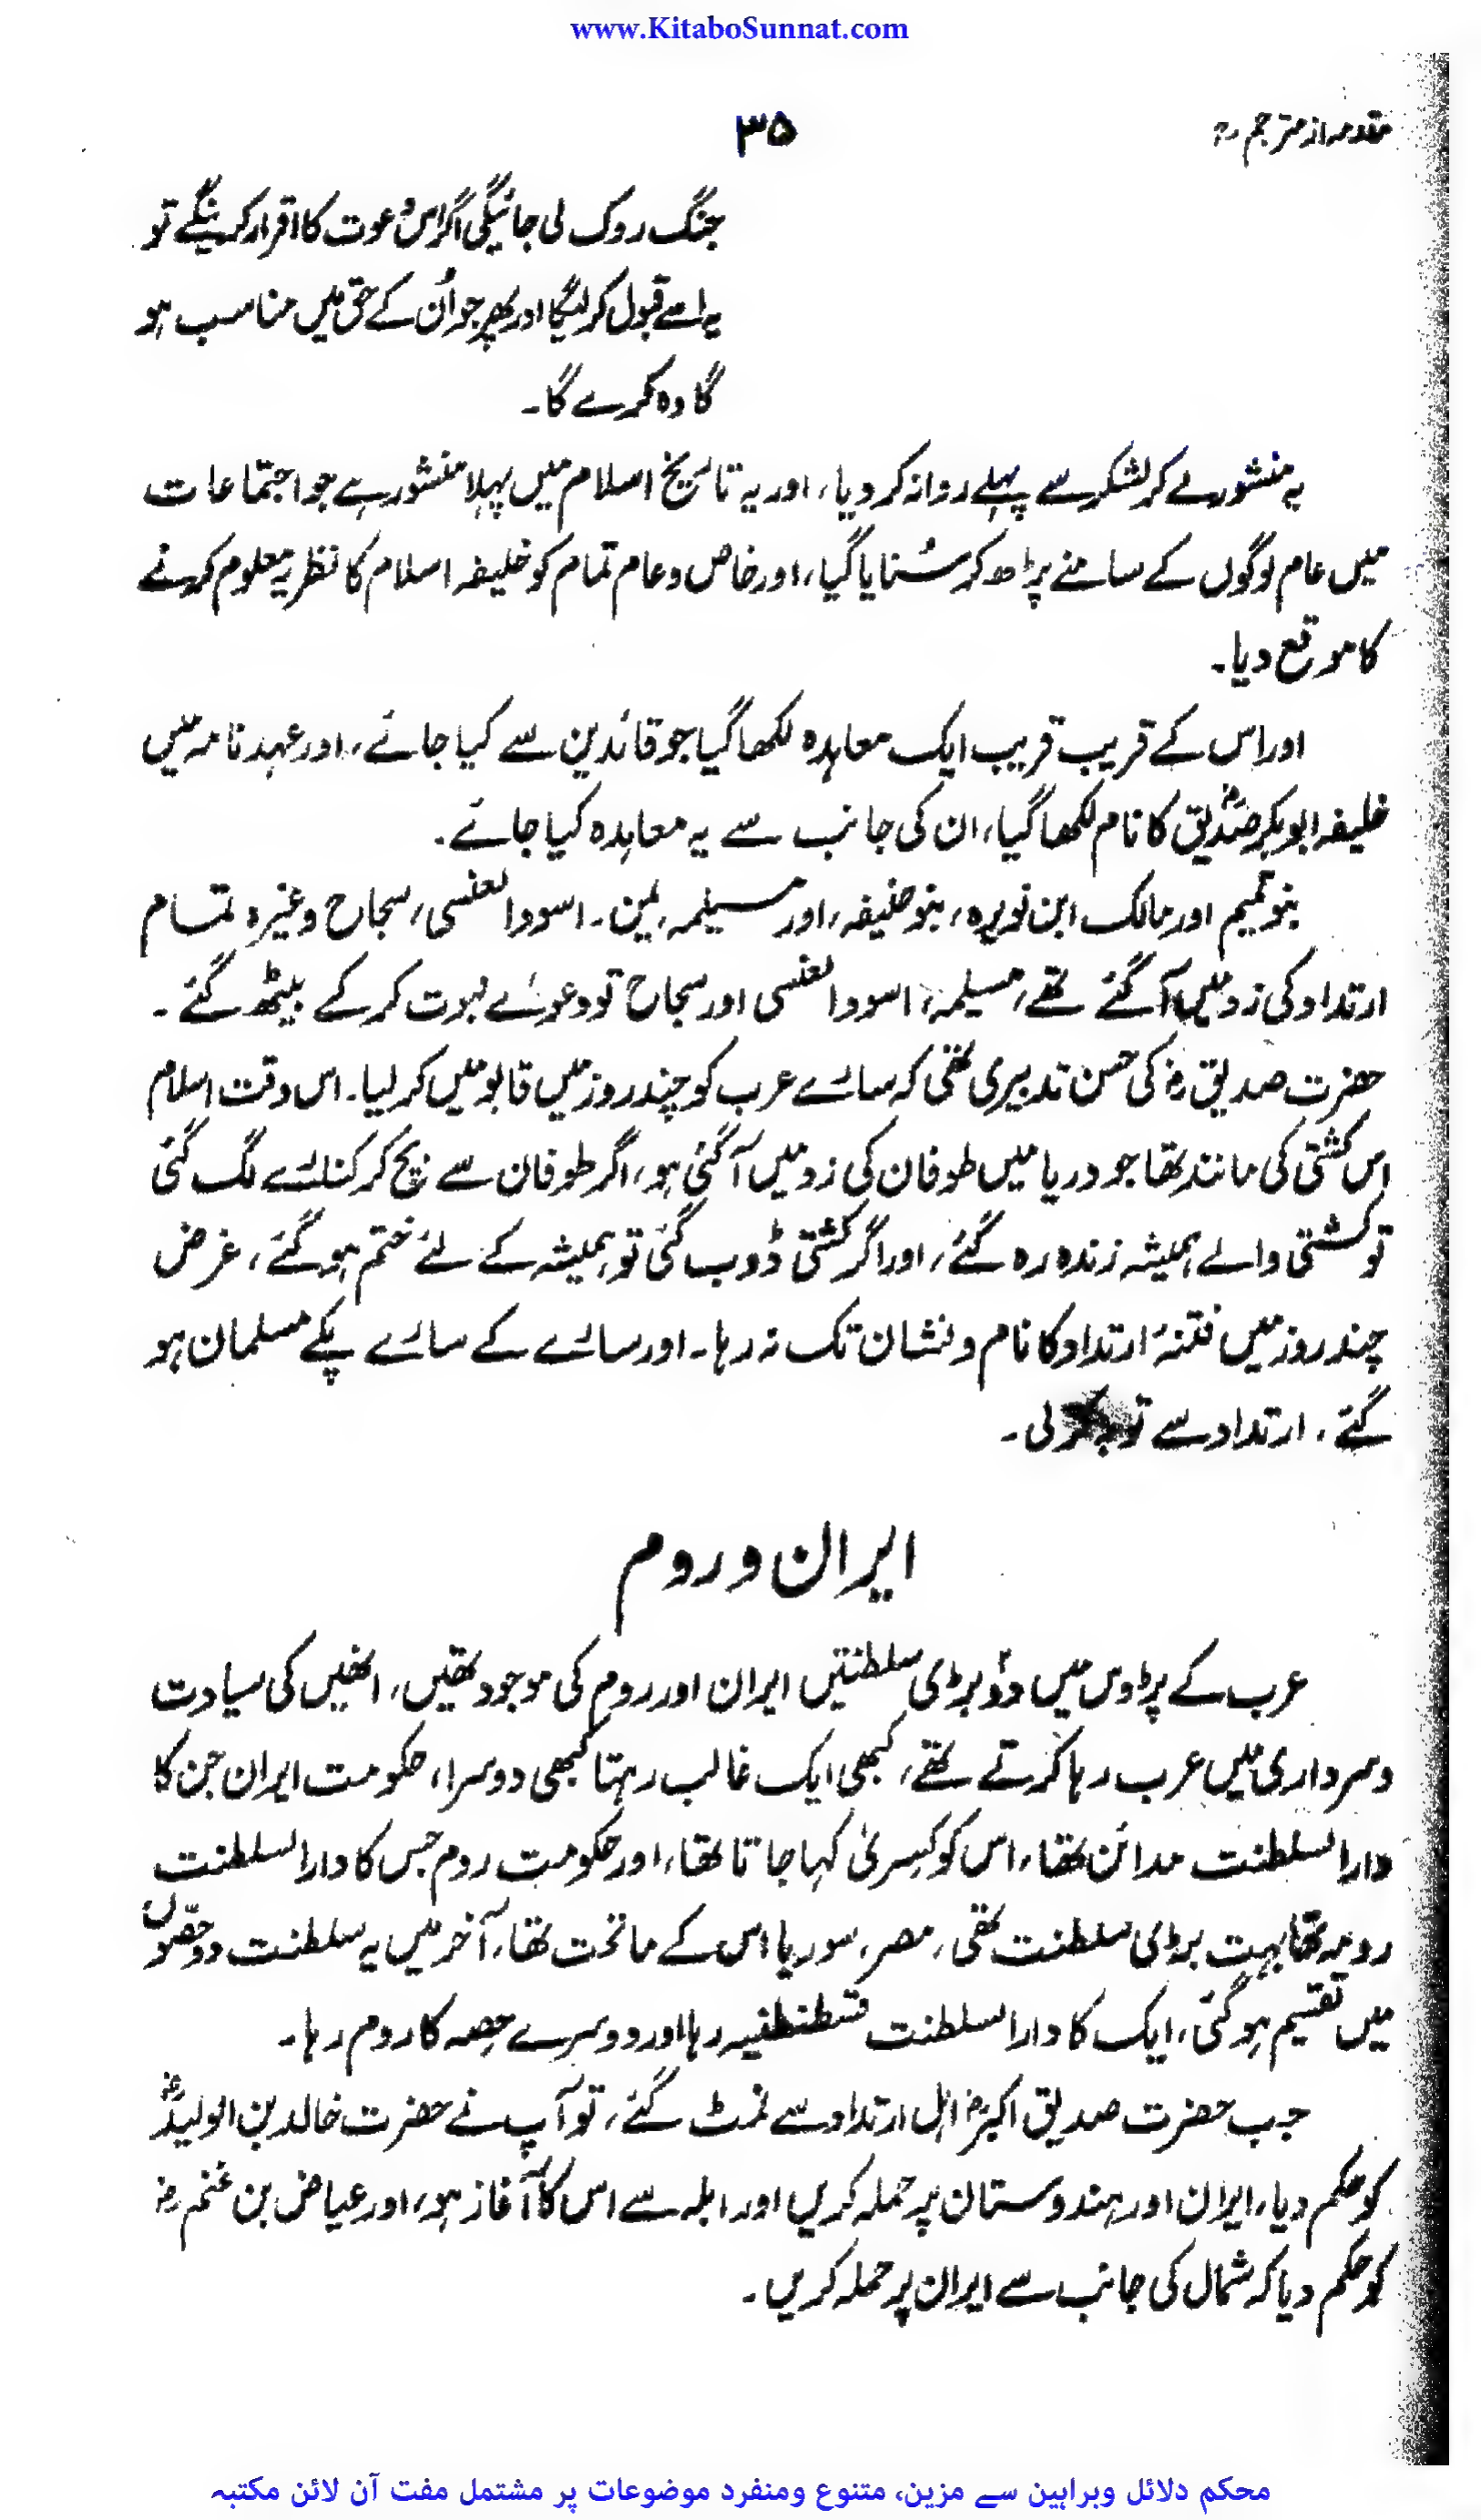 www.KitaboSunnat.com
مقدمہ از مترجم رح
۳۵
جنگ روک لی جائیگی اگر اس دعوت کا اقرار کرینگے تو
یہ اسے قبول کرلیگا اور پھر جو اُن کے حق میں مناسب ہو
گا وہ کرے گا۔
یہ منشور لے کر لشکر سے پہلے روانہ کر دیا، اور یہ تاریخ اسلام میں پہلا منشور ہے جو اجتماعات
میں عام لوگوں کے سامنے پڑھ کر سُنایا گیا، اور خاص و عام تمام کو خلیفہ اسلام کا نظریہ معلوم کرنے
کا موقع دیا۔
اور اس کے قریب قریب ایک معاہدہ لکھا گیا جو قائدین سے کیا جائے، اور عہد نامہ میں
خلیفہ ابو بکر صدیقؓ کا نام لکھا گیا، ان کی جانب سے یہ معاہدہ کیا جائے۔
بنو تمیم اور مالک ابن نویرہ، بنو حنیفہ، اور مسیلمہ، یمن۔ اسود العنسی، سجاح وغیرہ تمام
ارتداد کی زد میں آ گئے تھے، مسیلمہ، اسود العنسی اور سجاح تو دعوئے نبوت کر کے بیٹھ گئے۔
حضرت صدیق رض کی حسن تدبیری تھی کہ سارے عرب کو چند روز میں قابو میں کر لیا۔ اس وقت اسلام
اس کشتی کی مانند تھا جو دریا میں طوفان کی زد میں آ گئی ہو، اگر طوفان سے بچ کر کنارے لگ گئی
تو کشتی والے ہمیشہ زندہ رہ گئے، اور اگر کشتی ڈوب گئی تو ہمیشہ کے لئے ختم ہو گئے، غرض
چند روز میں فتنۂ ارتداد کا نام و نشان تک نہ رہا۔ اور سارے کے سارے پکے مسلمان ہو
گئے، ارتداد سے توبہ کر لی۔
ایران و روم
عرب کے پڑوس میں دو بڑی سلطنتیں ایران اور روم کی موجود تھیں، انھیں کی سیادت
و سرداری میں عرب رہا کرتے تھے، کبھی ایک غالب رہتا کبھی دوسرا، حکومت ایران جن کا
دارالسلطنت مدائن تھا، اس کو کسریٰ کہا جاتا تھا، اور حکومت روم جس کا دارالسلطنت
رومہ تھا بہت بڑی سلطنت تھی، مصر، سوریا اس کے ماتحت تھا، آخر میں یہ سلطنت دو حصّوں
میں تقسیم ہو گئی، ایک کا دارالسلطنت قسطنطنیہ رہا اور دوسرے حصہ کا روم رہا۔
جب حضرت صدیق اکبر رض اہل ارتداد سے نمٹ گئے، تو آپ نے حضرت خالد بن الولیدؓ
کو حکم دیا، ایران اور ہندوستان پر حملہ کریں اور ابلہ سے اس کا آغاز ہو، اور عیاض بن غنم رض
کو حکم دیا کہ شمال کی جانب سے ایران پر حملہ کریں۔
محکم دلائل وبراہین سے مزین، متنوع ومنفرد موضوعات پر مشتمل مفت آن لائن مکتبہ